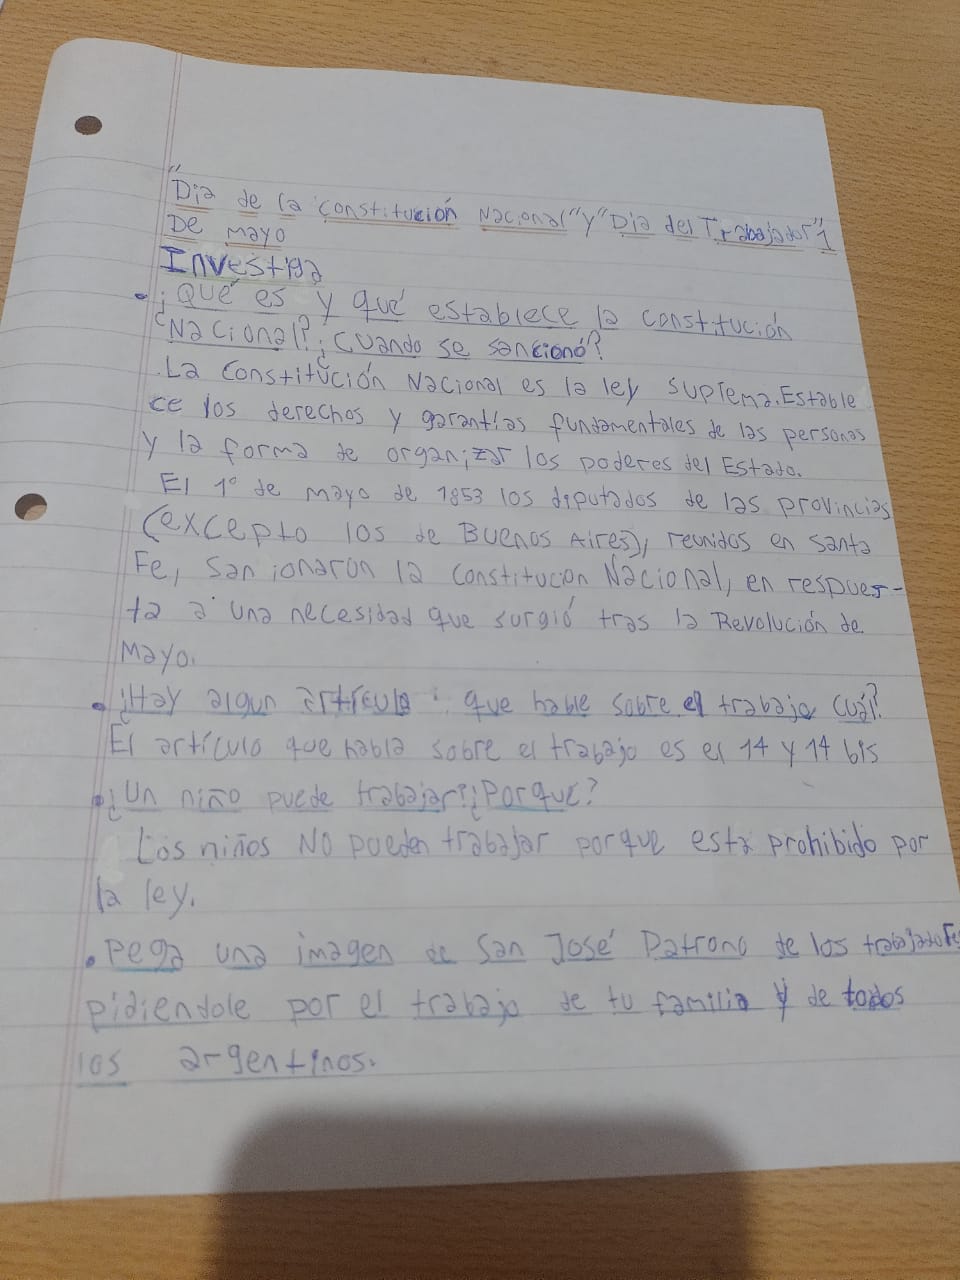 "Dia de la constitución Nacional" y "Dia del Trabajador" 1
De mayo
Investiga
¿Qué es y qué establece la constitución
Nacional? ¿Cuando se sancionó?
.La Constitución Nacional es la ley suprema. Estable
ce los derechos y garantías fundamentales de las personas
y la forma de organizar los poderes del Estado.
El 1° de mayo de 1853 los diputados de las provincias
(excepto los de Buenos Aires), reunidos en santa
Fe, San ionaron la Constitucion Nacional, en respues-
ta a una necesidad que surgió tras la Revolución de
Mayo.
• ¿Hay algun artículo que hable sobre el trabajo cuál?
El artículo que habla sobre el trabajo es el 14 y 14 bis
• ¿Un niño puede trabajar? ¿Porque?
Los niños NO pueden trabajar porque esta prohibido por
la ley.
• Pega una imagen de San José Patrono de los trabajadores
pidiendole por el trabajo de tu familia y de todos
los argentinos.